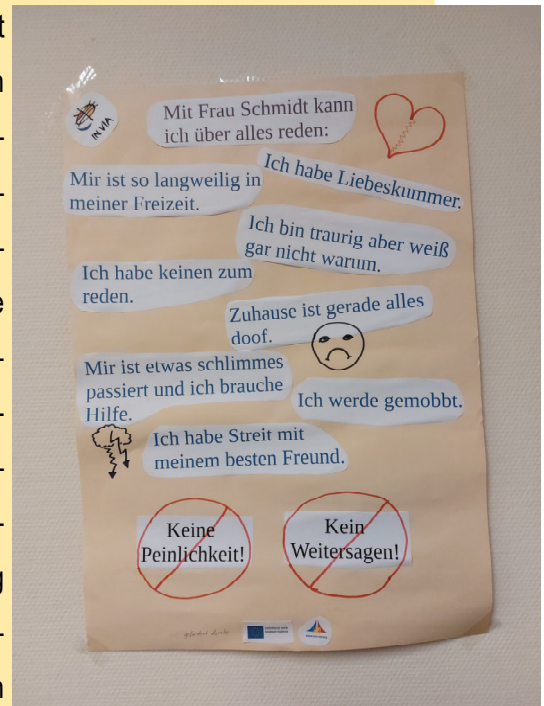 IN VIA
Mit Frau Schmidt kann
ich über alles reden:
Ich habe Liebeskummer.
Mir ist so langweilig in
meiner Freizeit.
Ich bin traurig aber weiß
gar nicht warum.
Ich habe keinen zum
reden.
Zuhause ist gerade alles
doof.
Mir ist etwas schlimmes
passiert und ich brauche
Hilfe.
Ich werde gemobbt.
Ich habe Streit mit
meinem besten Freund.
Keine
Peinlichkeit!
Kein
Weitersagen!